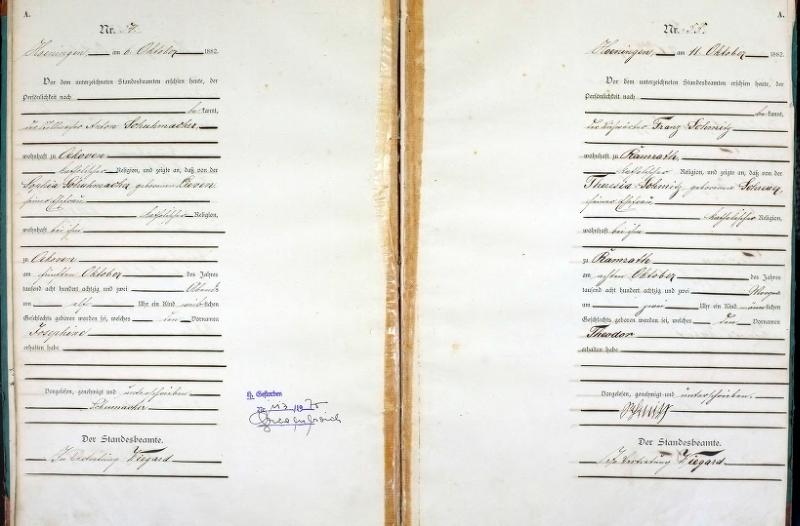 A.
Nr. 54.
Hoeningen, am 6. Oktober 1882.
Vor dem unterzeichneten Standesbeamten erschien heute, der
Persönlichkeit nach
bekannt,
der Anton Schuhmacher
wohnhaft zu Oekoven
katholischer Religion, und zeigte an, daß von der
Sophia Schuhmacher geborenen
seiner Ehefrau
katholischer Religion,
wohnhaft bei ihm
zu Oekoven
am fünften Oktober des Jahres
tausend acht hundert achtzig und zwei Abends
um elf Uhr ein Kind weiblichen
Geschlechts geboren worden sei, welches den Vornamen
Josephine
erhalten habe
Vorgelesen, genehmigt und unterschrieben
Schumacher
Der Standesbeamte.
In Vertretung Wiegard
Gestorben
Nr. 113/1975
Grevenbroich
A.
Nr. 55.
Hoeningen, am 11. Oktober 1882.
Vor dem unterzeichneten Standesbeamten erschien heute, der
Persönlichkeit nach
bekannt,
der Franz Schmitz
wohnhaft zu Ramrath
katholischer Religion, und zeigte an, daß von der
Theresia Schmitz geborenen
seiner Ehefrau
katholischer Religion,
wohnhaft bei ihm
zu Ramrath
am achten Oktober des Jahres
tausend acht hundert achtzig und zwei Morgens
um zwei Uhr ein Kind männlichen
Geschlechts geboren worden sei, welches den Vornamen
Theodor
erhalten habe
Vorgelesen, genehmigt und unterschrieben.
Schmitz
Der Standesbeamte.
In Vertretung Wiegard